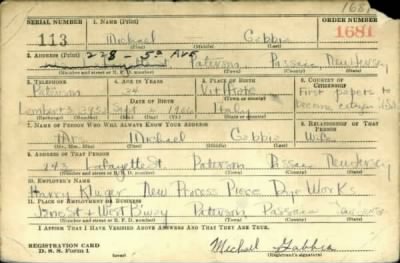 1681
SERIAL NUMBER 1. NAME (Print) ORDER NUMBER
113 Michael Gabbie 1681
(First) (Middle) (Last)
2. ADDRESS (Print) 228 - 5th Ave
Paterson Passaic New Jersey
(Number and street or R. F. D. number) (Town) (County) (State)
3. TELEPHONE 4. AGE IN YEARS 5. PLACE OF BIRTH 6. COUNTRY OF CITIZENSHIP
Paterson 34 First papers to
Lambert 3. Sept 1906 Italy become citizen
7. NAME OF PERSON WHO WILL ALWAYS KNOW YOUR ADDRESS 8. RELATIONSHIP OF THAT PERSON
Mrs Michael Gabbie Wife
(Mr., Mrs., Miss) (First) (Middle) (Last)
9. ADDRESS OF THAT PERSON
243 Lafayette St. Paterson Passaic New Jersey
(Number and street or R. F. D. number) (Town) (County) (State)
10. EMPLOYER'S NAME
Harry Kluger New Process Piece Dye Works
11. PLACE OF EMPLOYMENT OR BUSINESS
& West Paterson Passaic New Jersey
(Number and street or R. F. D. number) (Town) (County) (State)
I AFFIRM THAT I HAVE VERIFIED ABOVE ANSWERS AND THAT THEY ARE TRUE.
REGISTRATION CARD Michael Gabbie
D. S. S. Form 1 (over) (Registrant's signature)